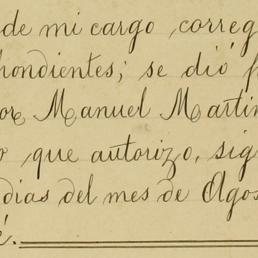 de mi cargo, correg
pondientes; se dió f
or Manuel Martin
o que autorizo, sig
dias del mes de Agos
é.